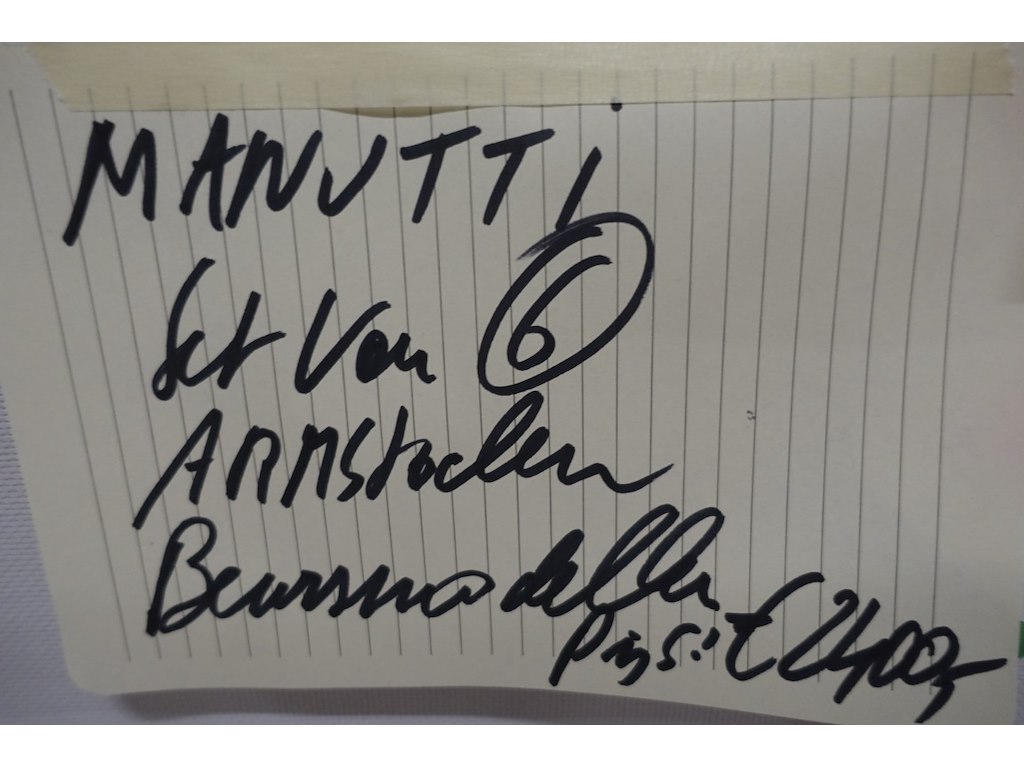 MANUTTI
Set Van 6
ARMStoelen
Beursmodellen
Prijs: € 2400,-